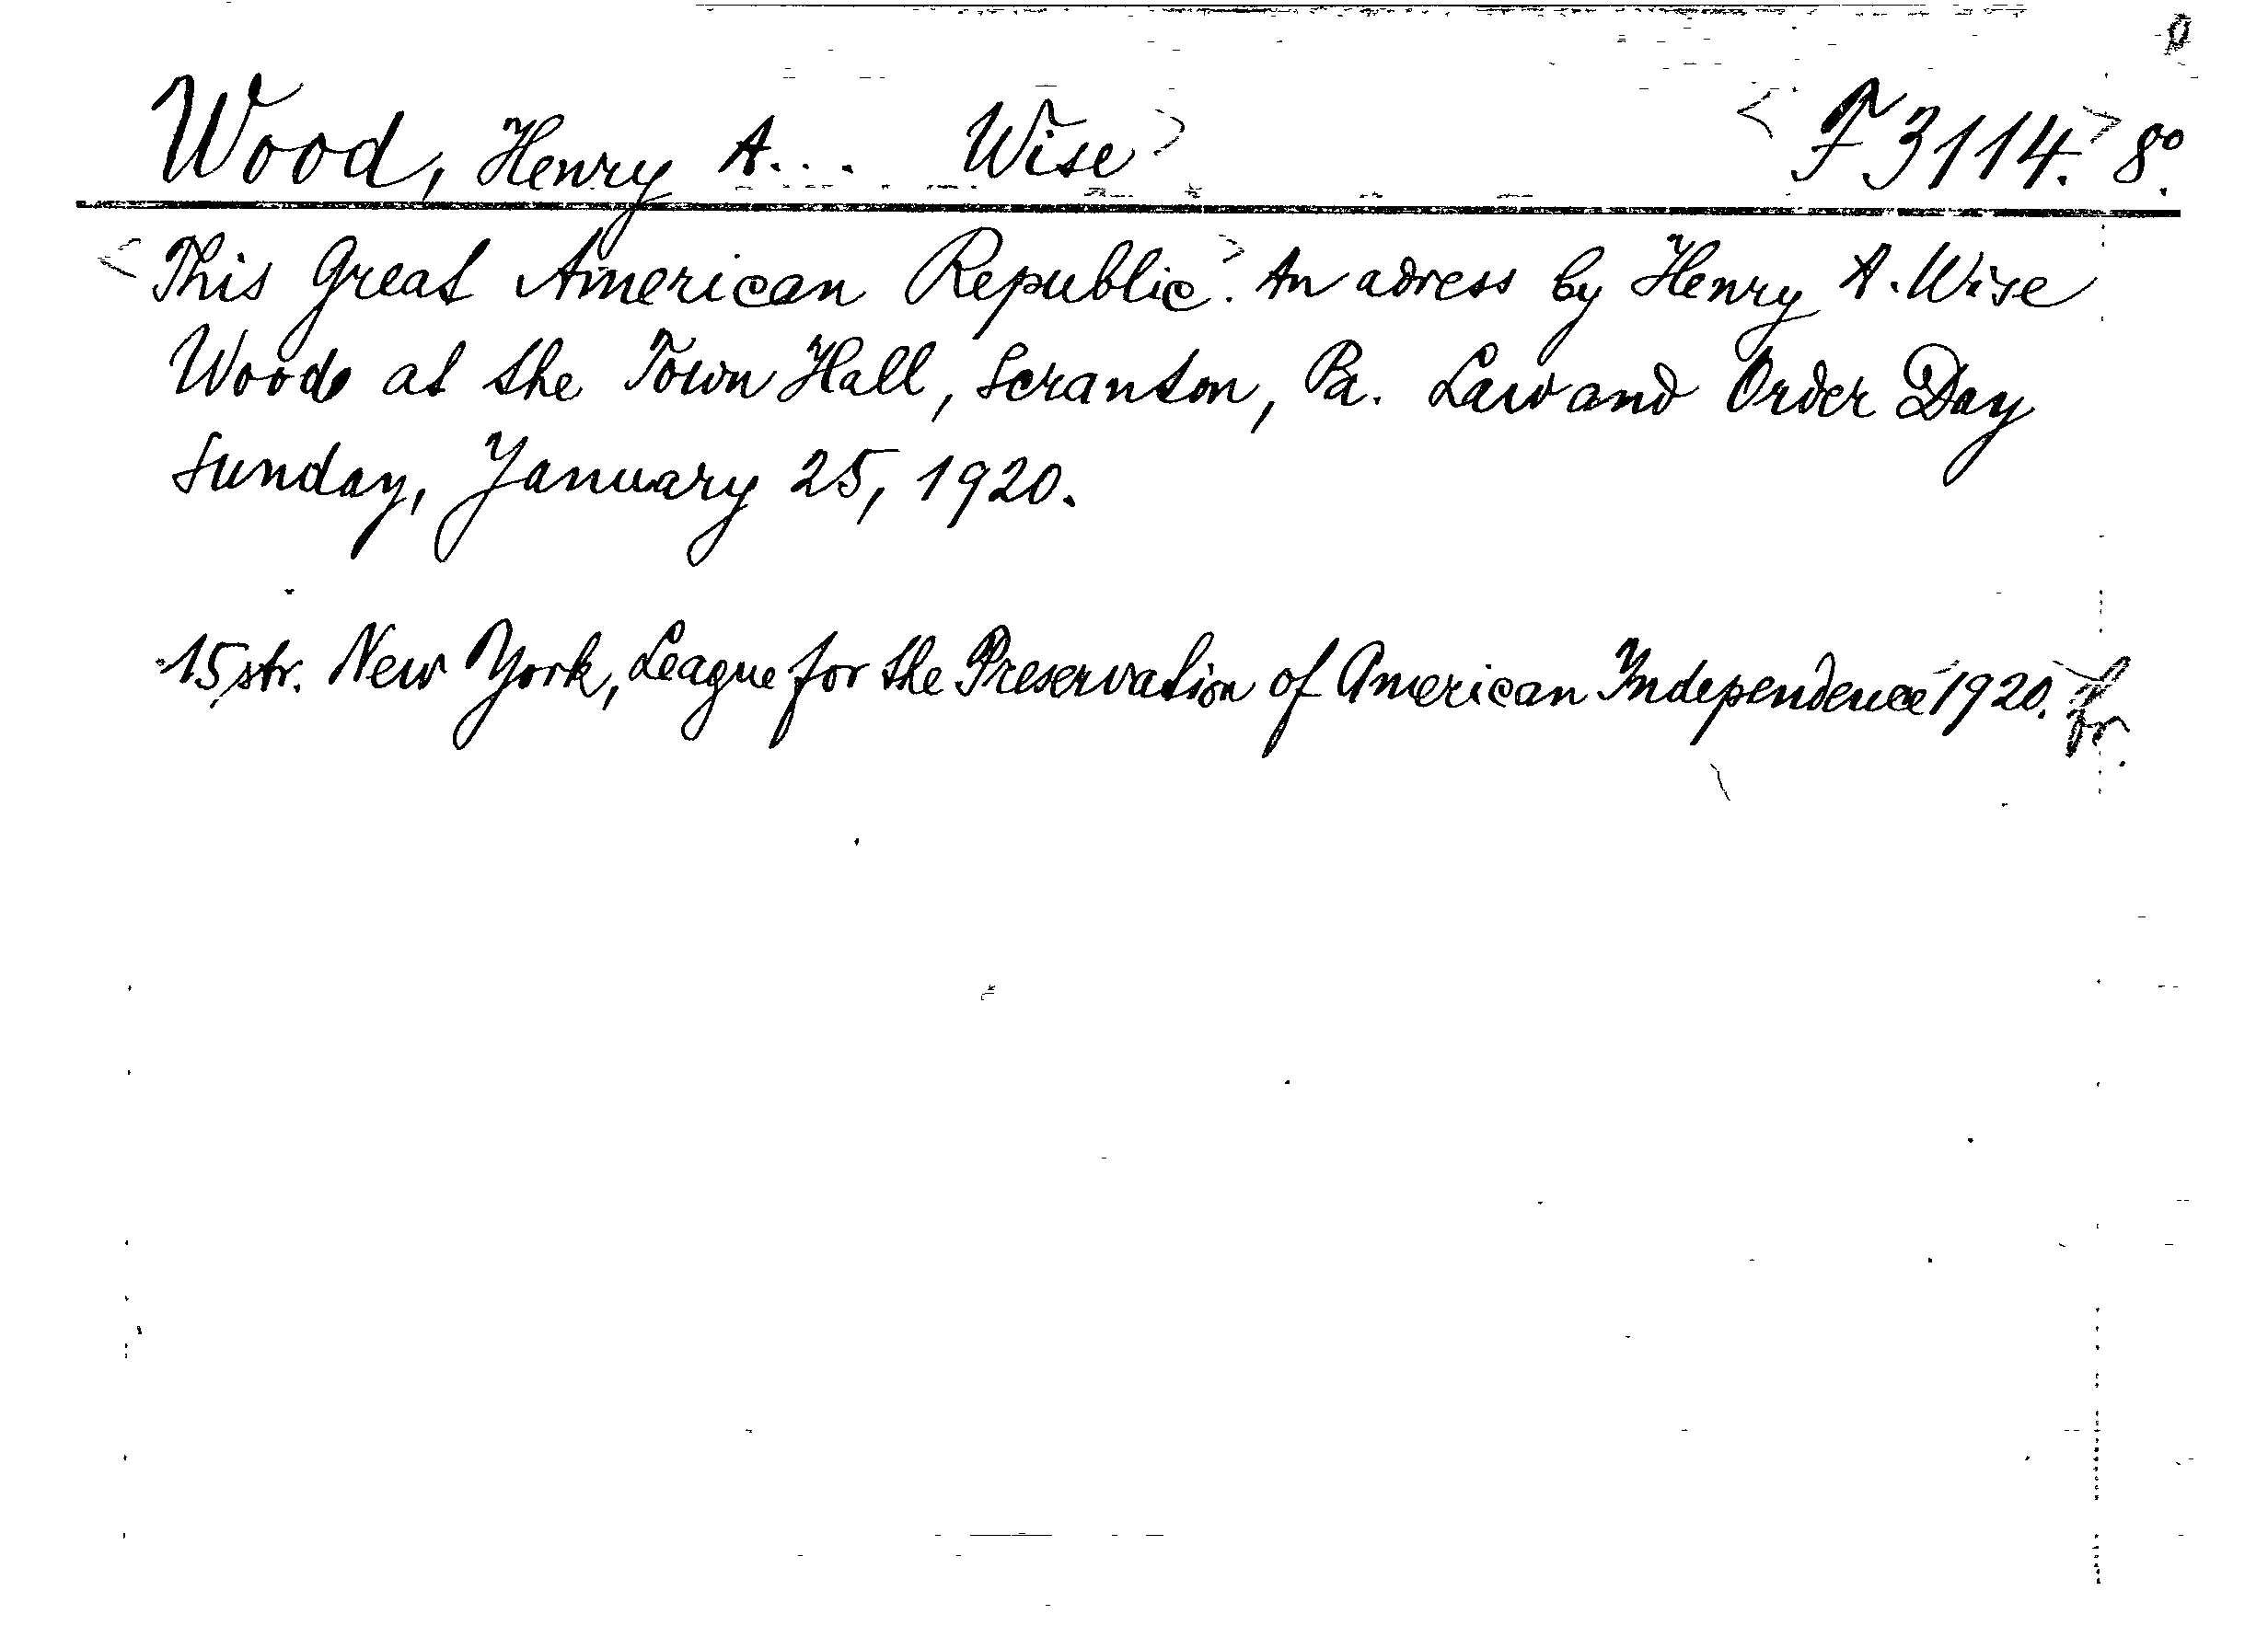 Wood, Henry A... Wise> <F 3114.> 8º.
<This Great American Republic>. An adress by Henry A. Wise
Wood at the Town Hall, Scranton, Pa. Law and Order Day
Sunday, January 25, 1920.
15 str. New York, League for the Preservation of American Independence 1920.